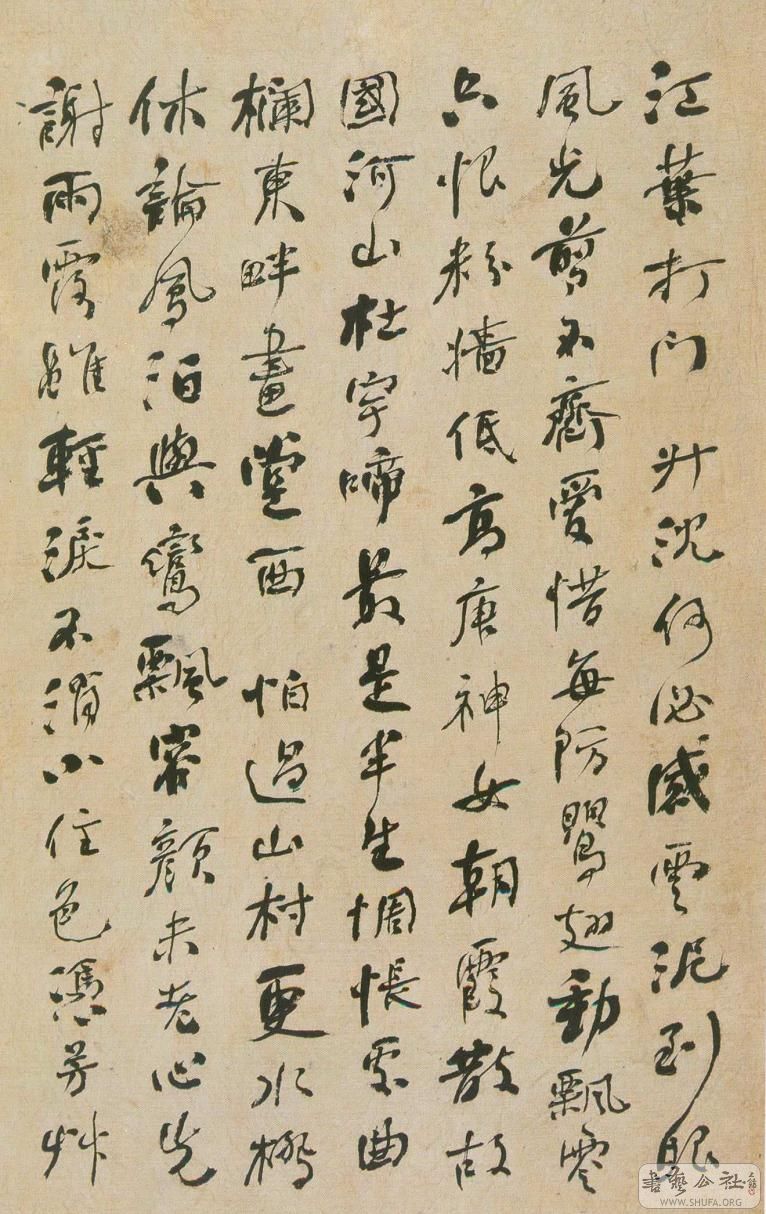 江葉打門 升沈何必感雲泥到眼
風光剪不齊愛惜每防鸎翅動飄零
只恨粉墻低高唐神女朝霞散故
國河山杜宇啼最是半生惆悵處曲
欄東畔畫堂西 怕過山村更水橋
休論鳳泊與鸞飄容顏未老心先
謝雨露雖輕淚不消小住色憑芳艸
書藝公社
WWW.SHUFA.ORG